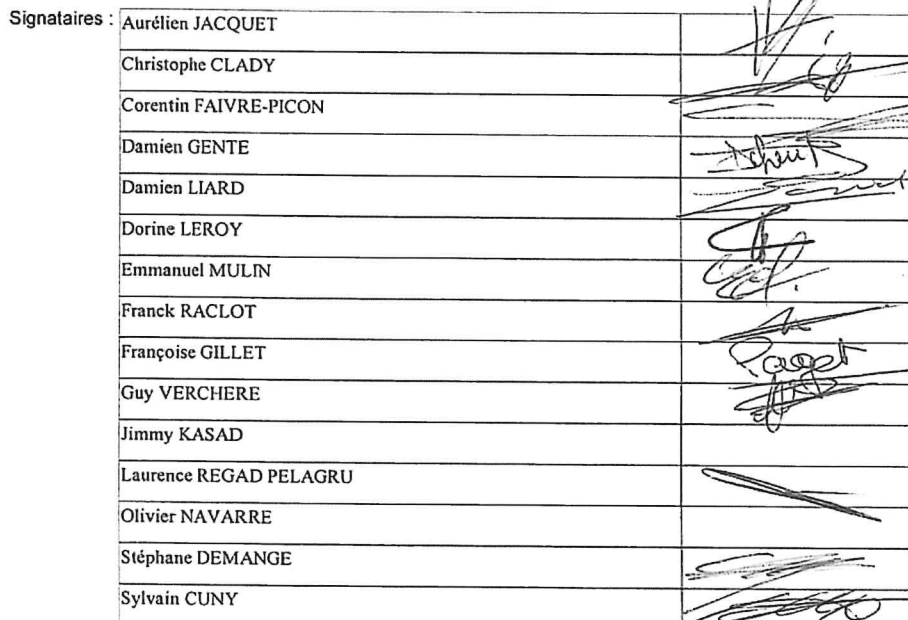 Signataires : Aurélien JACQUET
Christophe CLADY
Corentin FAIVRE-PICON
Damien GENTE
Damien LIARD
Dorine LEROY
Emmanuel MULIN
Franck RACLOT
Françoise GILLET
Guy VERCHERE
Jimmy KASAD
Laurence REGAD PELAGRU
Olivier NAVARRE
Stéphane DEMANGE
Sylvain CUNY